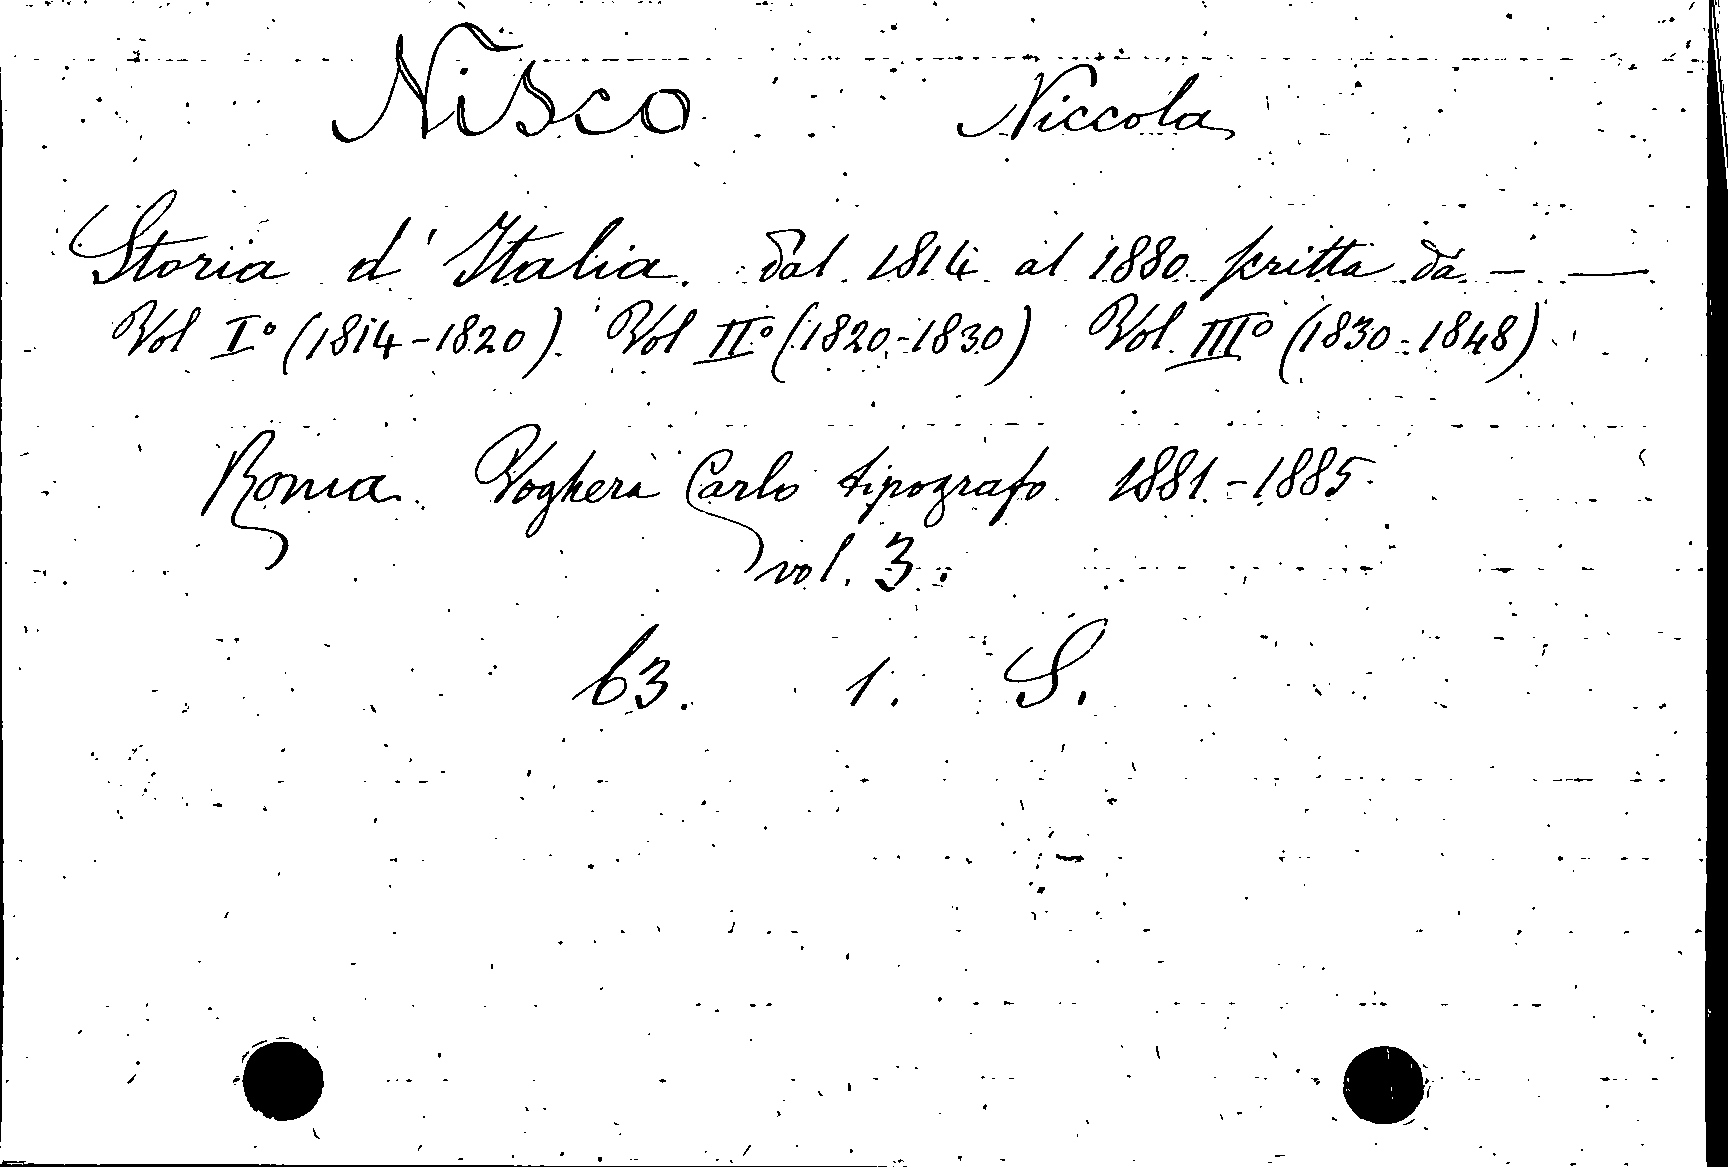 Nisco Niccola
Storia d'Italia dal 1814 al 1880 scritta da — —
Vol I° (1814-1820). Vol II° (1820-1830) Vol. III° (1830-1848)
Roma. Voghera Carlo tipografo 1881-1885
vol. 3.
63. 1. S.